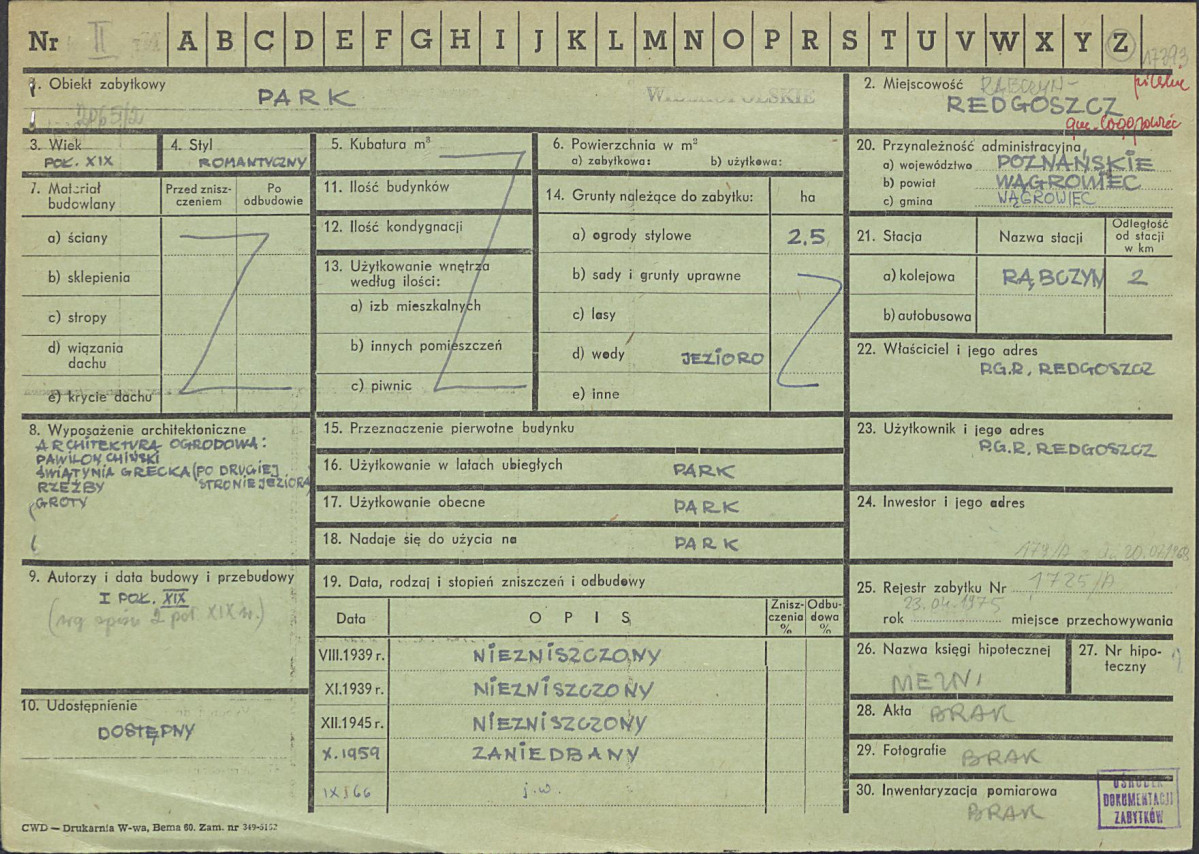 Nr II A B C D E F G H I J K L M N O P R S T U V W X Y Z
17393
1. Obiekt zabytkowy
PARK
WIELKOPOLSKIE
2. Miejscowość RĄBCZYN-
REDGOSZCZ
pilskie
gm. Łogojowiec
3. Wiek
POŁ. XIX
4. Styl
ROMANTYCZNY
5. Kubatura m³
6. Powierzchnia w m²
a) zabytkowa: b) użytkowa:
20. Przynależność administracyjna
a) województwo POZNAŃSKIE
b) powiat WĄGROWIEC
c) gmina WĄGROWIEC
7. Materiał budowlany
Przed zniszczeniem
Po odbudowie
a) ściany
b) sklepienia
c) stropy
d) wiązania dachu
e) krycie dachu
11. Ilość budynków
12. Ilość kondygnacji
13. Użytkowanie wnętrza według ilości:
a) izb mieszkalnych
b) innych pomieszczeń
c) piwnic
14. Grunty należące do zabytku: ha
a) ogrody stylowe 2,5
b) sady i grunty uprawne
c) lasy
d) wody JEZIORO
e) inne
21. Stacja Nazwa stacji Odległość od stacji w km
a) kolejowa RĄBCZYN 2
b) autobusowa
22. Właściciel i jego adres
P.G.R. REDGOSZCZ
8. Wyposażenie architektoniczne
ARCHITEKTURA OGRODOWA:
PAWILON CHIŃSKI
ŚWIĄTYNIA GRECKA (PO DRUGIEJ
RZEŹBY STRONIE JEZIORA)
GROTY
15. Przeznaczenie pierwotne budynku
16. Użytkowanie w latach ubiegłych PARK
17. Użytkowanie obecne PARK
18. Nadaje się do użycia na PARK
23. Użytkownik i jego adres
P.G.R. REDGOSZCZ
24. Inwestor i jego adres
9. Autorzy i data budowy i przebudowy
I POŁ. XIX
(wg spisu 2 poł XIX w.)
19. Data, rodzaj i stopień zniszczeń i odbudowy
Data O P I S Zniszczenia % Odbudowa %
VIII.1939 r. NIEZNISZCZONY
XI.1939 r. NIEZNISZCZONY
XII.1945 r. NIEZNISZCZONY
X.1959 ZANIEDBANY
IX 66 j.w.
25. Rejestr zabytku Nr 1725/A
23.04.1975
rok miejsce przechowywania
26. Nazwa księgi hipotecznej
27. Nr hipoteczny
28. Akta BRAK
29. Fotografie BRAK
30. Inwentaryzacja pomiarowa
BRAK
10. Udostępnienie
DOSTĘPNY
OŚRODEK
DOKUMENTACJI
ZABYTKÓW
CWD — Drukarnia W-wa, Bema 60. Zam. nr